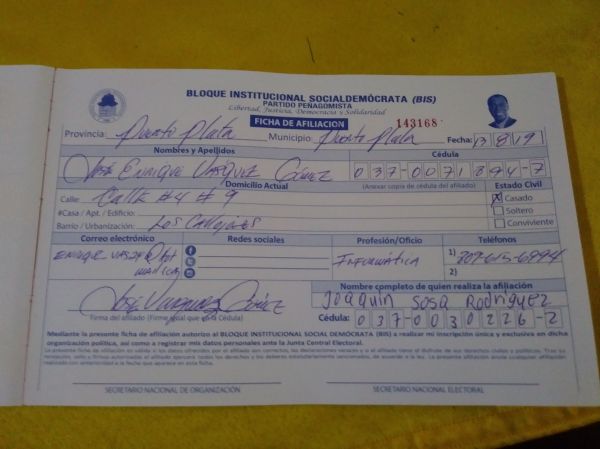 BLOQUE INSTITUCIONAL SOCIALDEMÓCRATA (BIS)
PARTIDO PEÑAGOMISTA
Libertad, Justicia, Democracia y Solidaridad
FICHA DE AFILIACION 143168
Provincia: Puerto Plata Municipio: Puerto Plata Fecha: 13 8 19
Nombres y Apellidos Cédula
José Enrique Vasquez Gómez 037-0071894-7
Domicilio Actual (Anexar copia de cédula del afiliado) Estado Civil
Calle: Calle #4 #9 X Casado
#Casa / Apt. / Edificio: Soltero
Barrio / Urbanización: Los Callejones Conviviente
Correo electrónico Redes sociales Profesión/Oficio Teléfonos
Informática 1) 809-615-6994
2)
Nombre completo de quien realiza la afiliación
José Vasquez Gómez Joaquín Sosa Rodriguez
Firma del afiliado (Firme igual que la Cédula) Cédula: 037-0030226-2
Mediante la presente ficha de afiliación autorizo al BLOQUE INSTITUCIONAL SOCIAL DEMÓCRATA (BIS) a realizar mi inscripción única y exclusiva en dicha
organización política, así como a registrar mis datos personales ante la Junta Central Electoral.
SECRETARIO NACIONAL DE ORGANIZACIÓN SECRETARIO NACIONAL ELECTORAL